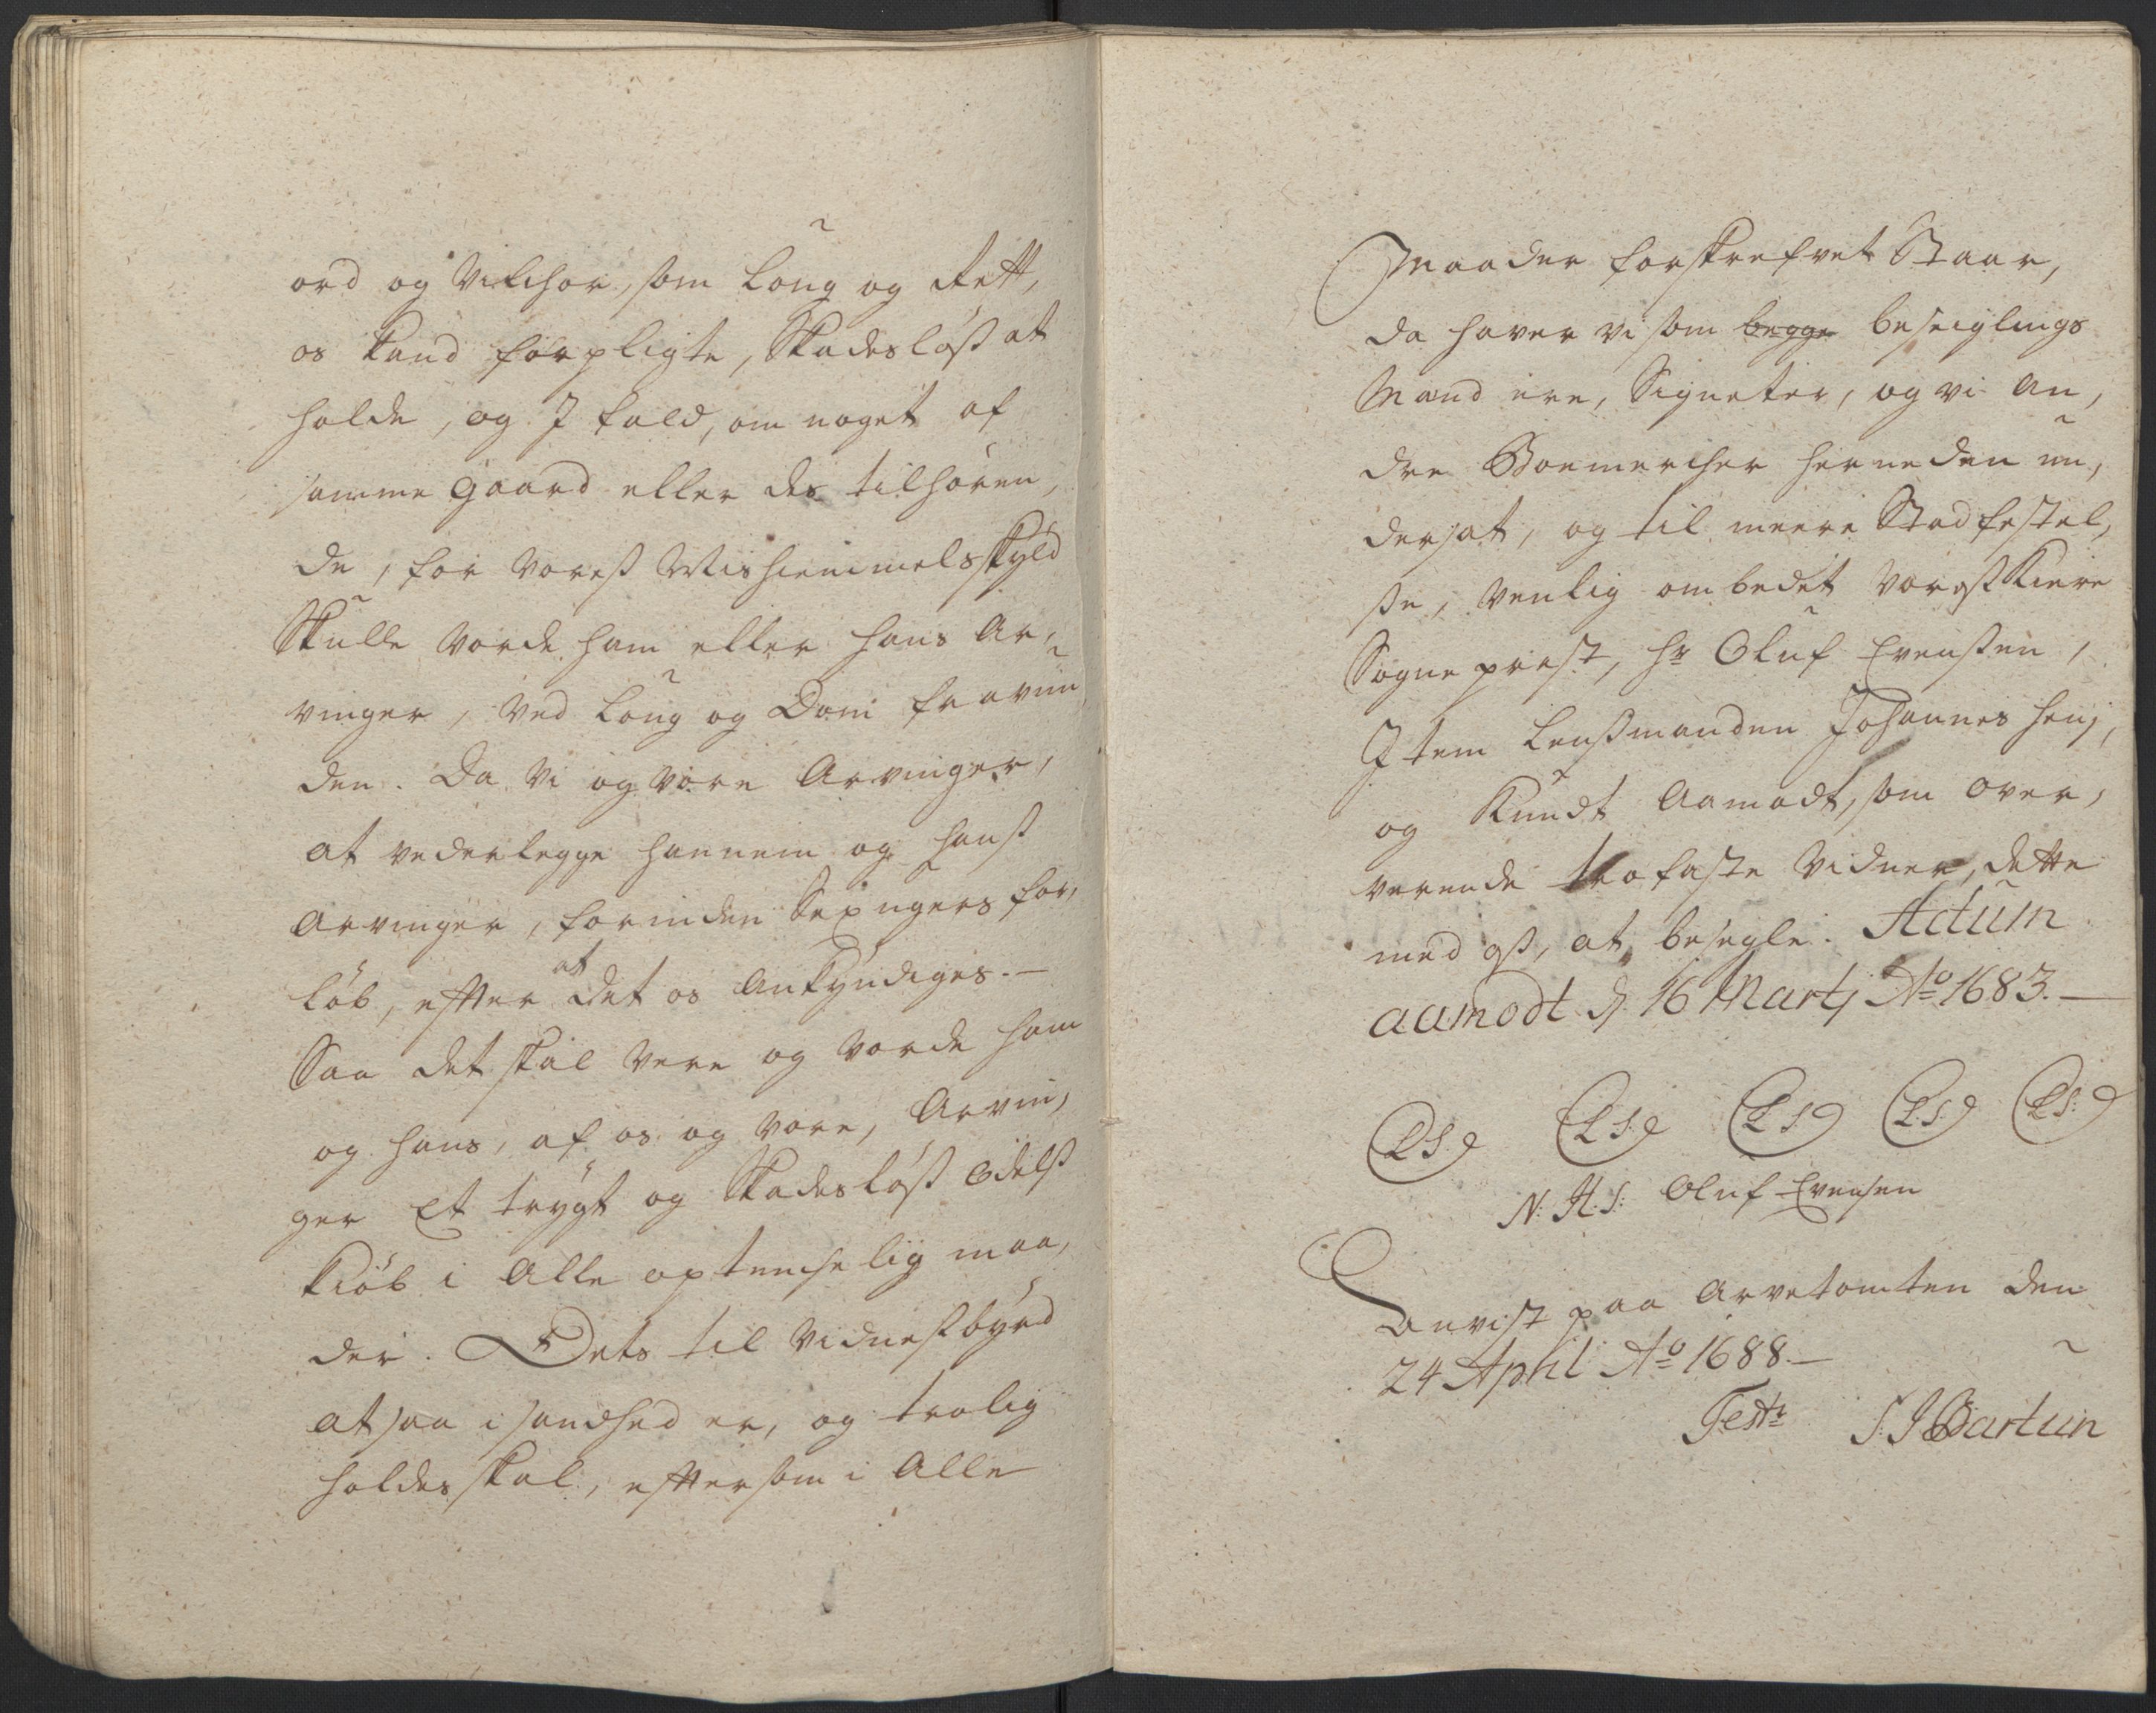 ord og Vilchor, som Loug og Rett,
os kand forpligte, Skadesløst at
holde, og J fald, om noget af
samme gaard eller des tilhøren,
de, for Voreß Mishiemmelsskyld
Skulle vorde ham eller hans Ar,
vinger, ved Loug og Dom fravun,
den. Da Vi og Vore Arvinger,
at vederlegge hannem og hanß
Arvinger, forinden Sex ugers for,
løb, efter at det os ankyndiges. —
Saa det skal vere og vorde ham
og hans, af os og vore, Arvin,
ger Et trygt og Skadesløß Odelß
kiøb i Alle optenchelig maa,
der. Dets til Vidneßbyrd
at saa i sandhed er, og trolig
holdes skal, eftersom i Alle
Maader forskrefvet Staar,
da haver vi som begge beseiglings
Mænd ere, Signeter, og vi An,
dre Boemercher herneden un,
dersat, og til meere Stadfestel,
ße, venlig ombedet voreß Kiere
Sogneprest, Hr Oluf Evenßen,
Jtem Lenßmanden Johannes Henj,
og Knudt Aamodt, som over,
verende trofaste Vidner, dette
med oß, at besegle. Actum
aamodt d 16 Martj Ao 1683. —
L S. L S. L S L. S. L S.
N: H. S: Oluf Evensen
Anvist paa Arvetomten den
24 April Ao 1688. —
Test: S. J Bartun